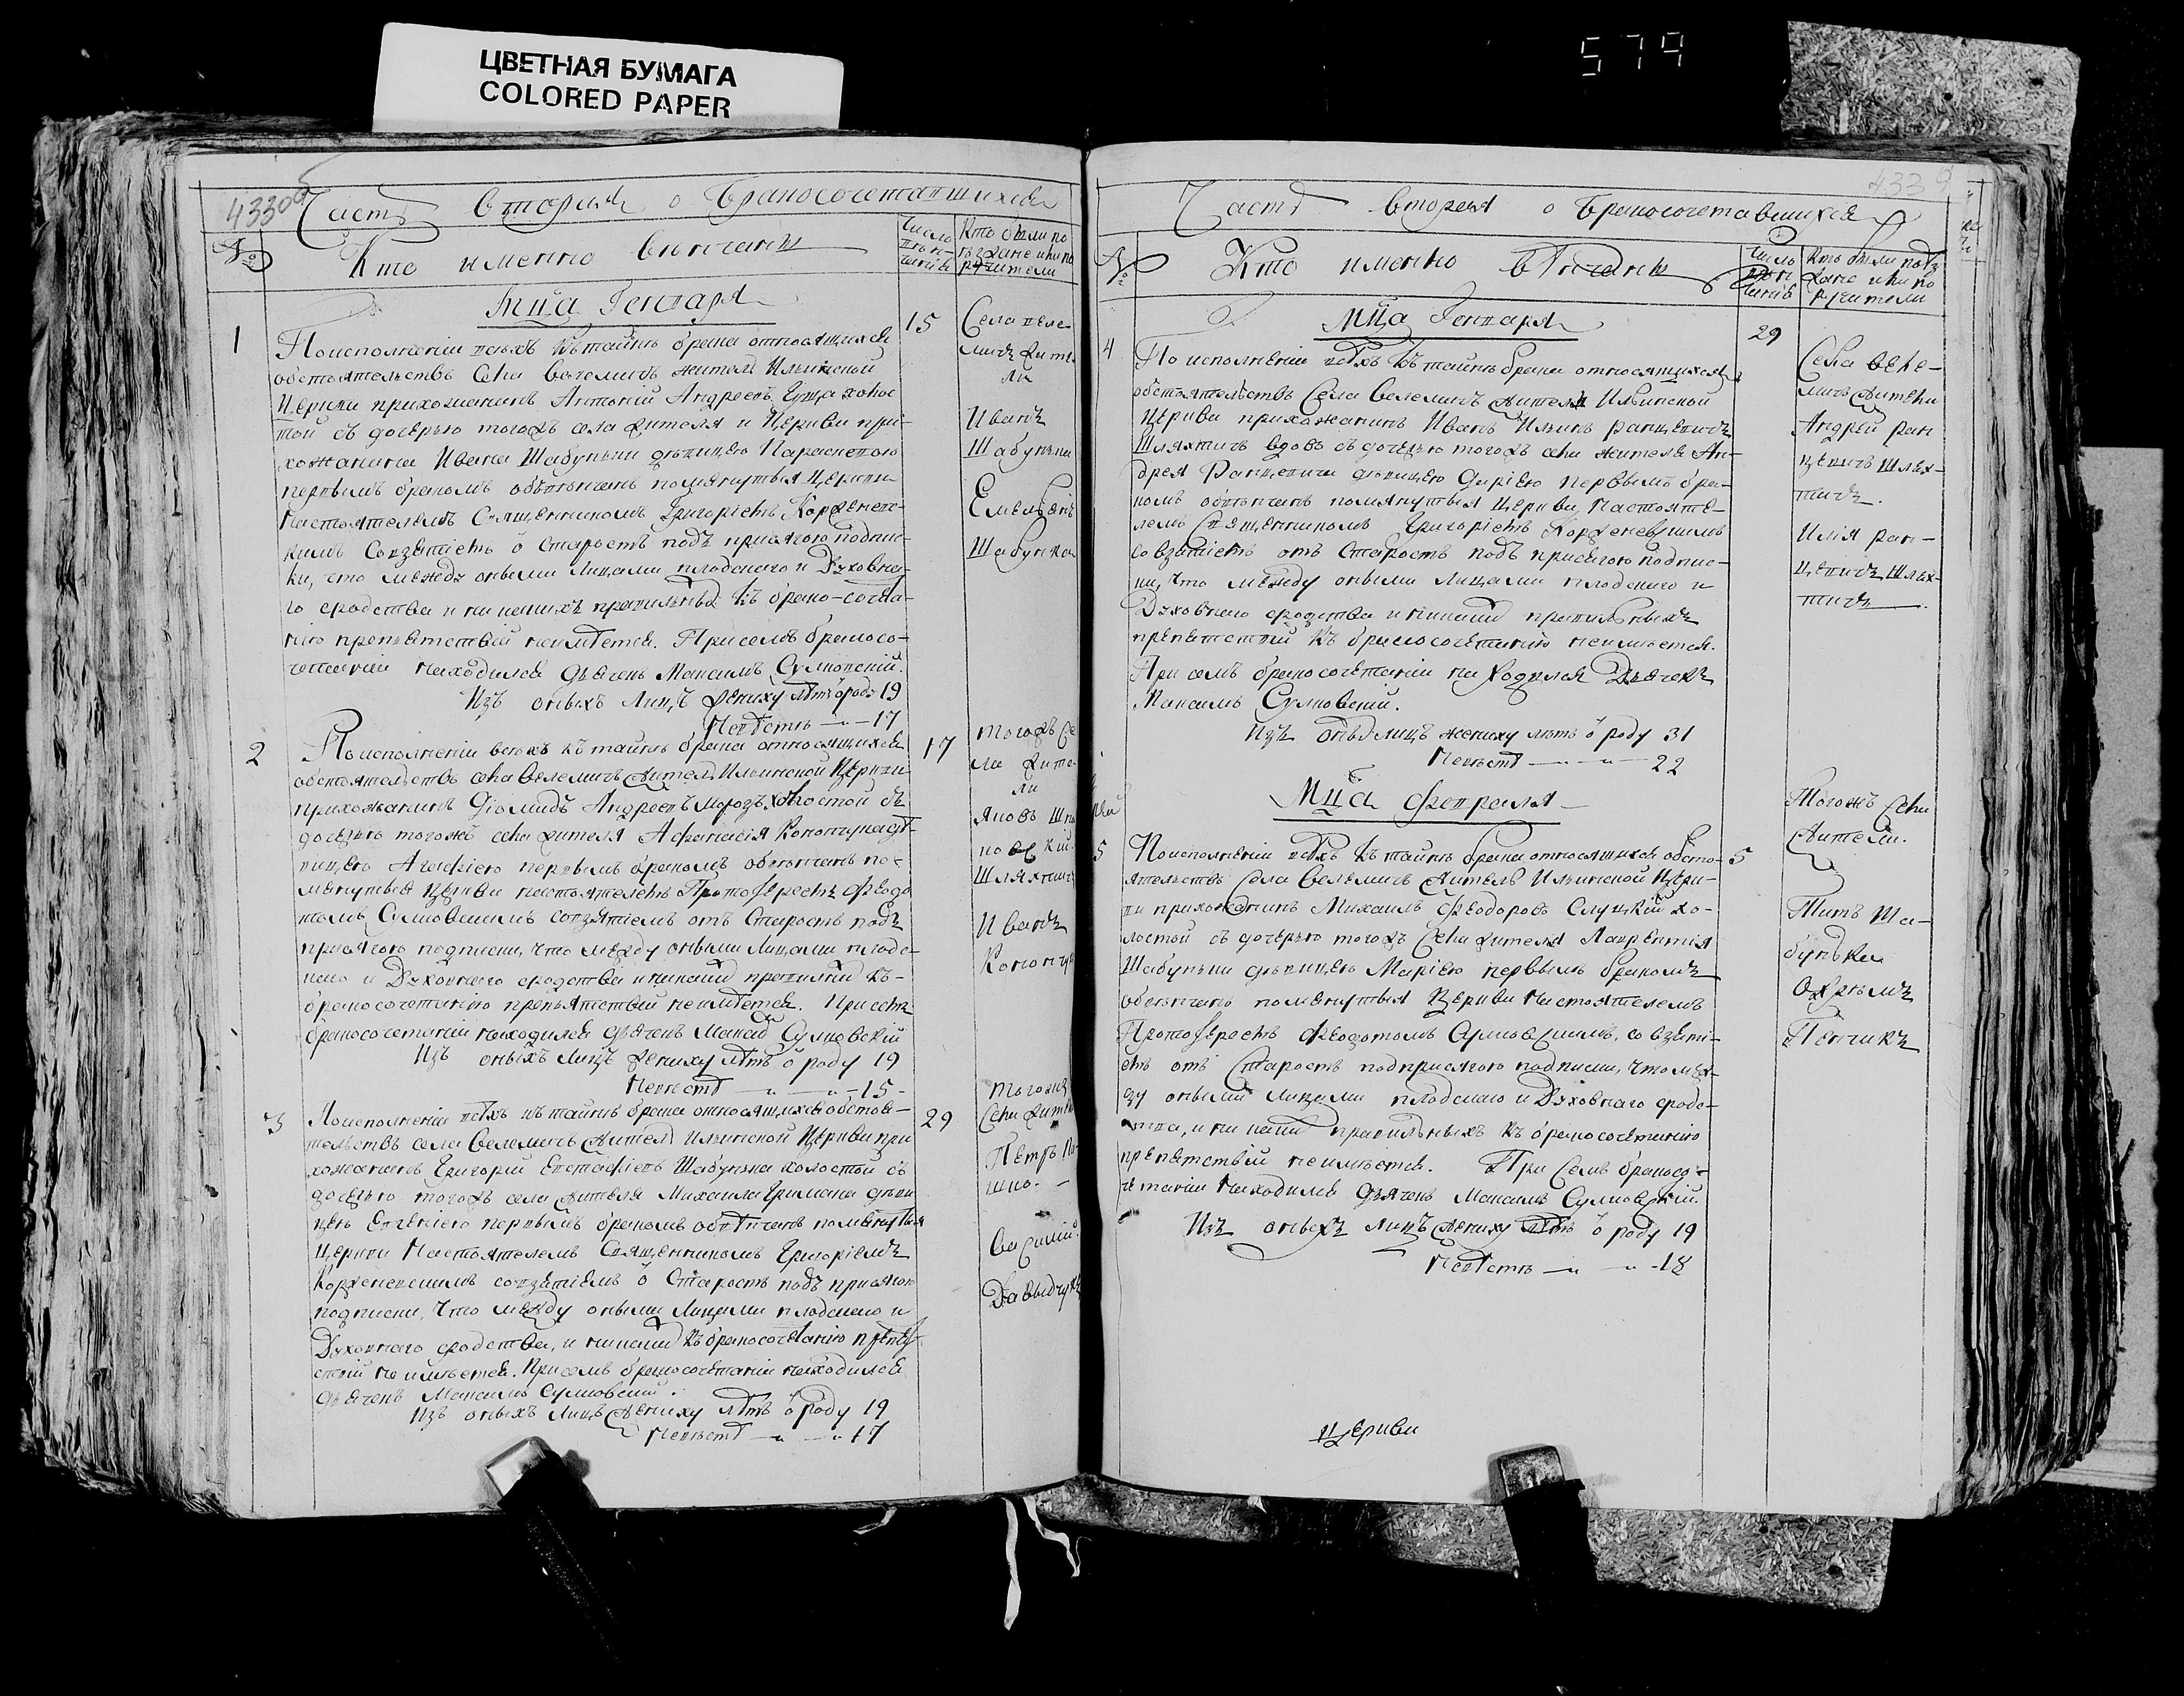 ЦВЕТНАЯ БУМАГА
COLORED PAPER
579
4330а
Часть вторая о бракосочетавшихся
№
Кто именно венчаны
Число венчанія
Кто были поѣзжане или поручители
Мца Генваря
1
По исполненіи всѣхъ къ тайнѣ брака относящихся
обстоятельствъ села Велемичъ жител Ильинской
Церкви прихожанинъ Антоній Андреевъ холос
той съ дочерью тогожъ села жителя и Церкви при-
хожанина Ивана Шабуньки дѣвицею Параскевою
первымъ бракомъ обвѣнчанъ помянутыя Церкви
настоятелемъ Священникомъ Григоріемъ Корженевс-
кимъ совзятіемъ о Старостъ подъ присягою подпис-
ки, что между оными лицами плодскаго и Духовна-
го сродства и никакихъ правильныхъ къ брако-сочета-
нію препятствій неимѣется. При семъ бракосо-
четаніи находился дьячекъ Максимъ Сулковскій.
Изъ оныхъ лицъ жениху лѣтъ ѿ роду 19
Невѣстѣ — 17
15
Села Веле-
мичъ жите
ли
Иванъ
Шабунька
Емельянъ
Шабунька
2
По исполненіи всѣхъ къ тайнѣ брака относящихся
обстоятельствъ села Велемичъ жител Ильинской Церкви
прихожанинъ Діомидъ Андреевъ Морозъ холостой съ
дочерью тогожъ села жителя Афанасія Конончука дѣ-
вицею Агафіею первымъ бракомъ обвѣнчанъ по-
мянутыя Церкви настоятелемъ Протоіереемъ Феодо
томъ Сулковскимъ совзятіемъ отъ Старостъ подъ
присягою подписки, что между оными лицами плодс-
каго и Духовнаго сродства и никакихъ правилныхъ къ-
бракосочетанію препятствій неимѣется. При семъ
бракосочетаніи находился дьячекъ Максимъ Сулковскій
Изъ оныхъ лицъ жениху лѣтъ ѿ роду 19
Невѣстѣ — 15
17
тогожъ Се
ла жите-
ли
Яковъ
Шляхтичъ
Иванъ
Конончук
3
По исполненіи всѣхъ къ тайнѣ брака относящихся обстоя-
тельствъ села Велемичъ жител Ильинской Церкви при
хожанинъ Григорій Евстафіевъ Шабунька холостой съ
дочерью тогожъ села жителя Михаила Гримана дѣви
цею Евгеніею первымъ бракомъ обвѣнчанъ помянутыя
Церкви Настоятелемъ Священникомъ Григоріемъ
Корженевскимъ совзятіемъ ѿ Старостъ подъ присягою
подписки, что между оными Лицами плодскаго и
Духовнаго сродства, и никакихъ къ бракосочетанію препят-
ствій не имѣется. При семъ бракосочетаніи находился
дьячекъ Максимъ Сулковскій.
Изъ оныхъ лицъ жениху лѣтъ ѿ роду 19
Невѣстѣ — 17
29
тогожъ
Села жители
Петръ
Василій
Давыдчукъ
4339
Часть вторая о бракосочетавшихся
№
Кто именно вѣнчаны
Число венчанія
Кто были поѣзжане или поручители
Мца Генваря
4
По исполненіи всѣхъ къ тайнѣ брака относящихся
обстоятельствъ Села Велемичъ жителя Ильинской
Церкви прихожанинъ Иванъ Ильинъ Ранцевичъ
Шляхтичъ вдовъ съ дочерью тогожъ села жителя Ан-
дрея Ранцевича дѣвицею Дарією первымъ бра-
комъ обвѣнчанъ помянутыя Церкви, Настояте-
лемъ Священникомъ Григоріемъ Корженевскимъ
со взятіемъ отъ Старостъ подъ присягою подпис-
ки, что между оными лицами плодскаго и
Духовнаго сродства и никакихъ правильныхъ
препятствій къ бракосочетанію неимѣется.
При семъ бракосочетаніи находился Дьячекъ
Максимъ Сулковскій.
Изъ оныхъ лицъ жениху лѣтъ ѿ роду 31
Невѣстѣ — 22
29
Села Веле-
личъ жители
Андрей Ран
цевичъ Шлях-
тичъ.
Илія Ран-
цевичъ Шлях-
тичъ.
Мца Февраля
5
По исполненіи всѣхъ къ тайнѣ брака относящихся обсто-
ятельствъ Села Велемичъ житель Ильинской Церк-
ви прихожанинъ Михаилъ Феодоровъ Слуцкій хо-
лостой съ дочерью тогожъ Села жителя Лаврентія
Шабуньки дѣвицею Маріею первымъ бракомъ
обвѣнчанъ помянутыя Церкви настоятелемъ
Протоіереемъ Феодотомъ Сулковскимъ, со взяті-
емъ отъ Старостъ подприсягою подписки, что меж-
ду оными лицами плодскаго и Духовнаго сродс-
тва, и никакихъ правильныхъ къ бракосочетанію
препятствій неимѣется. При Семъ бракосо-
четаніи находился дьячекъ Максимъ Сулковскій.
Изъ оныхъ лицъ жениху лѣтъ ѿ роду 19
Невѣстѣ — 18
5
Тогожъ Села
жители.
Титъ Ша-
бунька
Охрѣмъ
Пенчикъ
Церкви